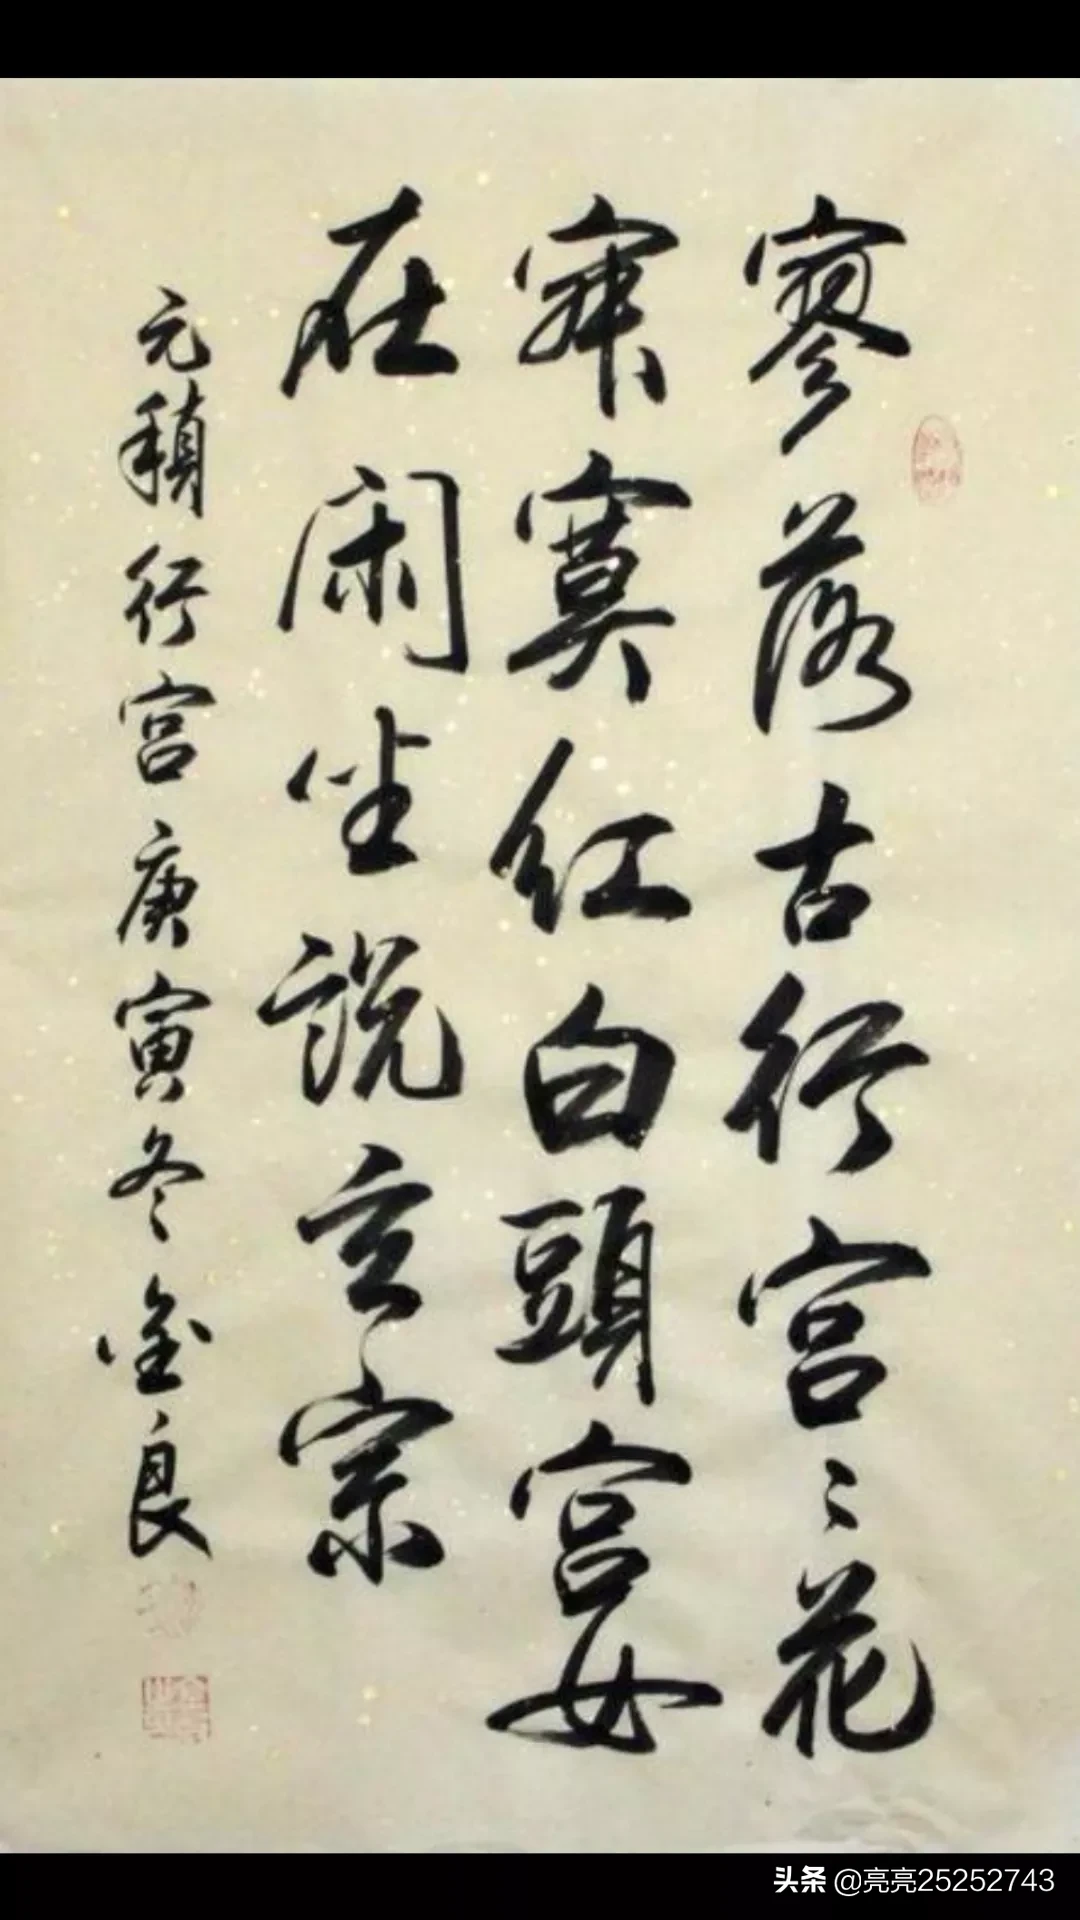 寥落古行宫〻花
寂寞红白頭宫女
在闲坐説玄宗
元稹行宫庚寅冬金良
头条 @亮亮25252743